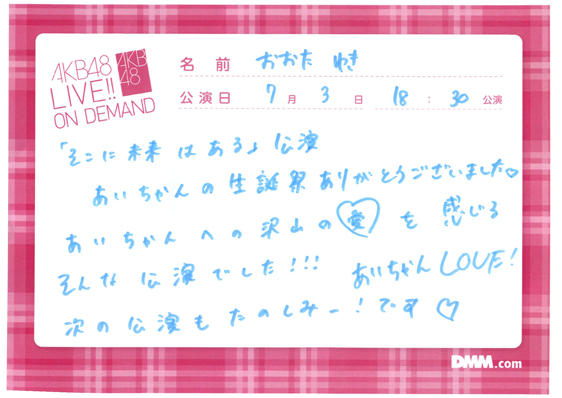 AKB48
LIVE!!
ON DEMAND
AKB
48
名前 おおた ゆき
公演日 7月3日 18:30公演
「そこに未来はある」公演
あいちゃんの生誕祭ありがとうございました♡
あいちゃんへの沢山の愛を感じる
そんな公演でした!!!
あいちゃんLOVE!
次の公演もたのしみー!です♡
DMM.com